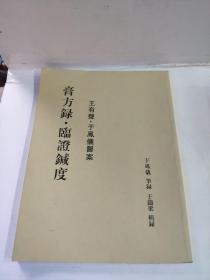 王有聲·于鳳儀醫案
膏方録·臨證鍼度
于鳳儀 筆録 于鐘棠 輯録